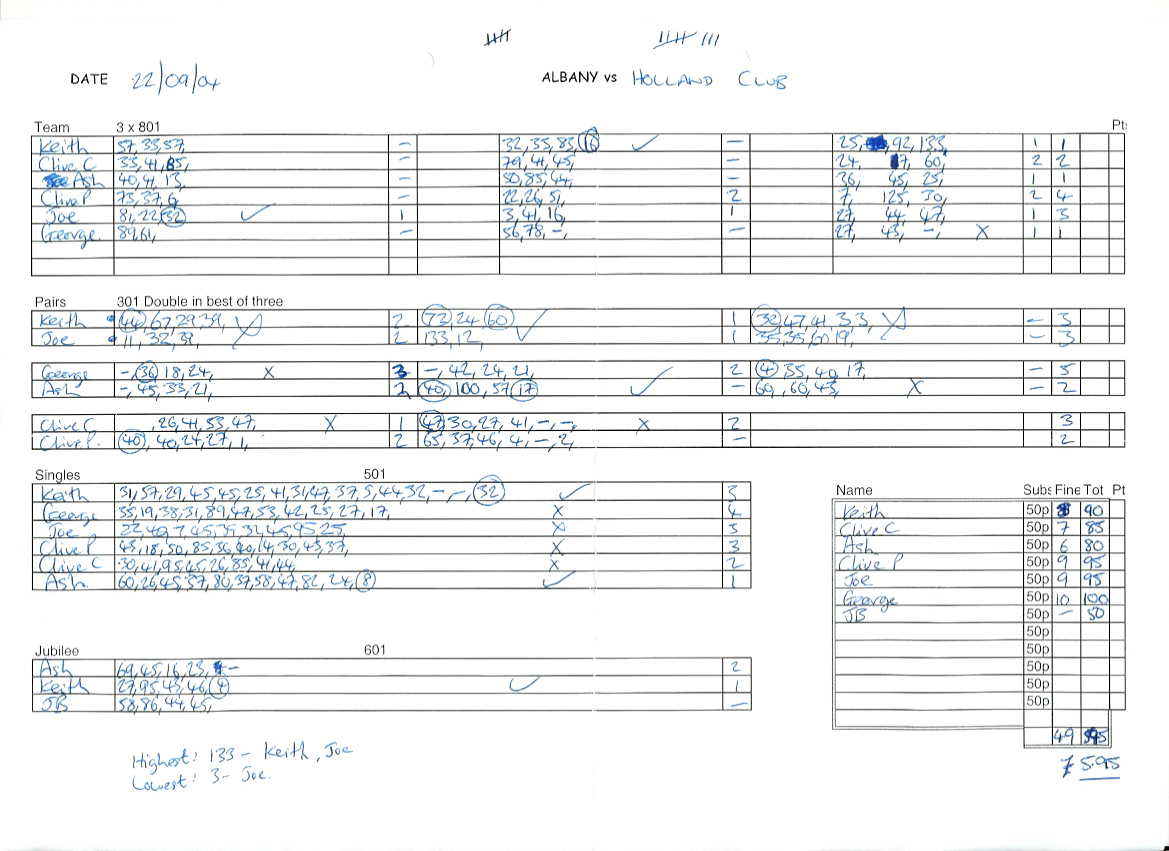 DATE 22/09/04 ALBANY vs HOLLAND CLUB
Team 3 x 801 Pts
Keith 57, 33, 57, – 32, 35, 83, 16 ✓ – 25, 92, 133, 1 1
Clive C 33, 41, 85, – 79, 41, 45, – 24, 7, 60, 2 2
Ash 40, 41, 13, – 50, 85, 44, – 36, 45, 25, 1 1
Clive P 73, 37, 6, – 22, 26, 51, 2 7, 125, 30, 2 4
Joe 81, 22, 32 ✓ 1 3, 41, 16, 1 27, 44, 47, 1 3
George 89, 61, – 56, 78, –, – 27, 43, –, X 1 1
Pairs 301 Double in best of three
Keith 44, 67, 29, 39, X 2 73, 24, 60 ✓ 1 38, 47, 41, 33, X – 3
Joe 11, 32, 39, 2 133, 12, 1 35, 35, 60, 19, – 3
George –, 36, 18, 24, X 3 –, 42, 24, 21, 2 4, 35, 40, 17, – 5
Ash –, 45, 33, 21, 2 40, 100, 57, 17 ✓ – 60, 60, 43, X – 2
Clive C , 26, 41, 53, 47, X 1 47, 30, 27, 41, –, –, X 2 3
Clive P. 40, 40, 24, 27, 1, 2 65, 37, 46, 4, –, 2, – 2
Singles 501
Keith 31, 57, 29, 45, 45, 25, 41, 31, 47, 37, 5, 44, 32, –, –, 32 ✓ 3
George 35, 19, 38, 31, 89, 47, 53, 42, 25, 27, 17, X 4
Joe 22, 40, 7, 45, 39, 32, 45, 95, 25, X 3
Clive P 45, 18, 50, 85, 36, 40, 14, 30, 43, 37, X 3
Clive C 30, 41, 95, 45, 26, 85, 41, 44, X 2
Ash 60, 26, 45, 37, 80, 37, 58, 47, 82, 24, 8 ✓ 1
Name Subs Fine Tot Pt
Keith 50p 8 90
Clive C 50p 7 85
Ash 50p 6 80
Clive P 50p 9 95
Joe 50p 9 95
George 50p 10 100
JB 50p – 50
50p
50p
50p
50p
50p
49 595
£ 5.95
Jubilee 601
Ash 69, 45, 16, 23, – 2
Keith 27, 95, 43, 46, 4 ✓ 1
JB 58, 86, 44, 45, –
Highest: 133 – Keith, Joe
Lowest: 3 – Joe.